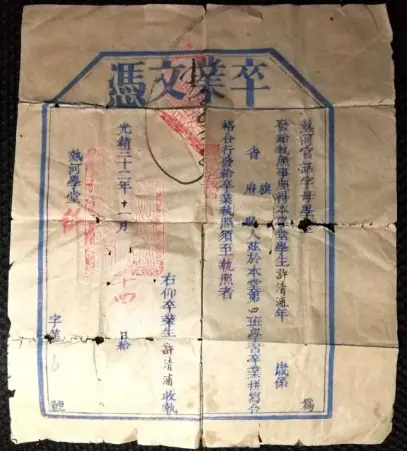 卒業文憑
熱河官話字母學堂 為
發給執照事照得本堂卒業學生許清浦年 歲係
省 府 旗 縣 人茲於本堂第四班學習卒業拼寫合
格合行發給卒業執照須至執照者
右仰卒業生許清浦收執
光緒三十二年十一月十四日給
熱河學堂 字第 號